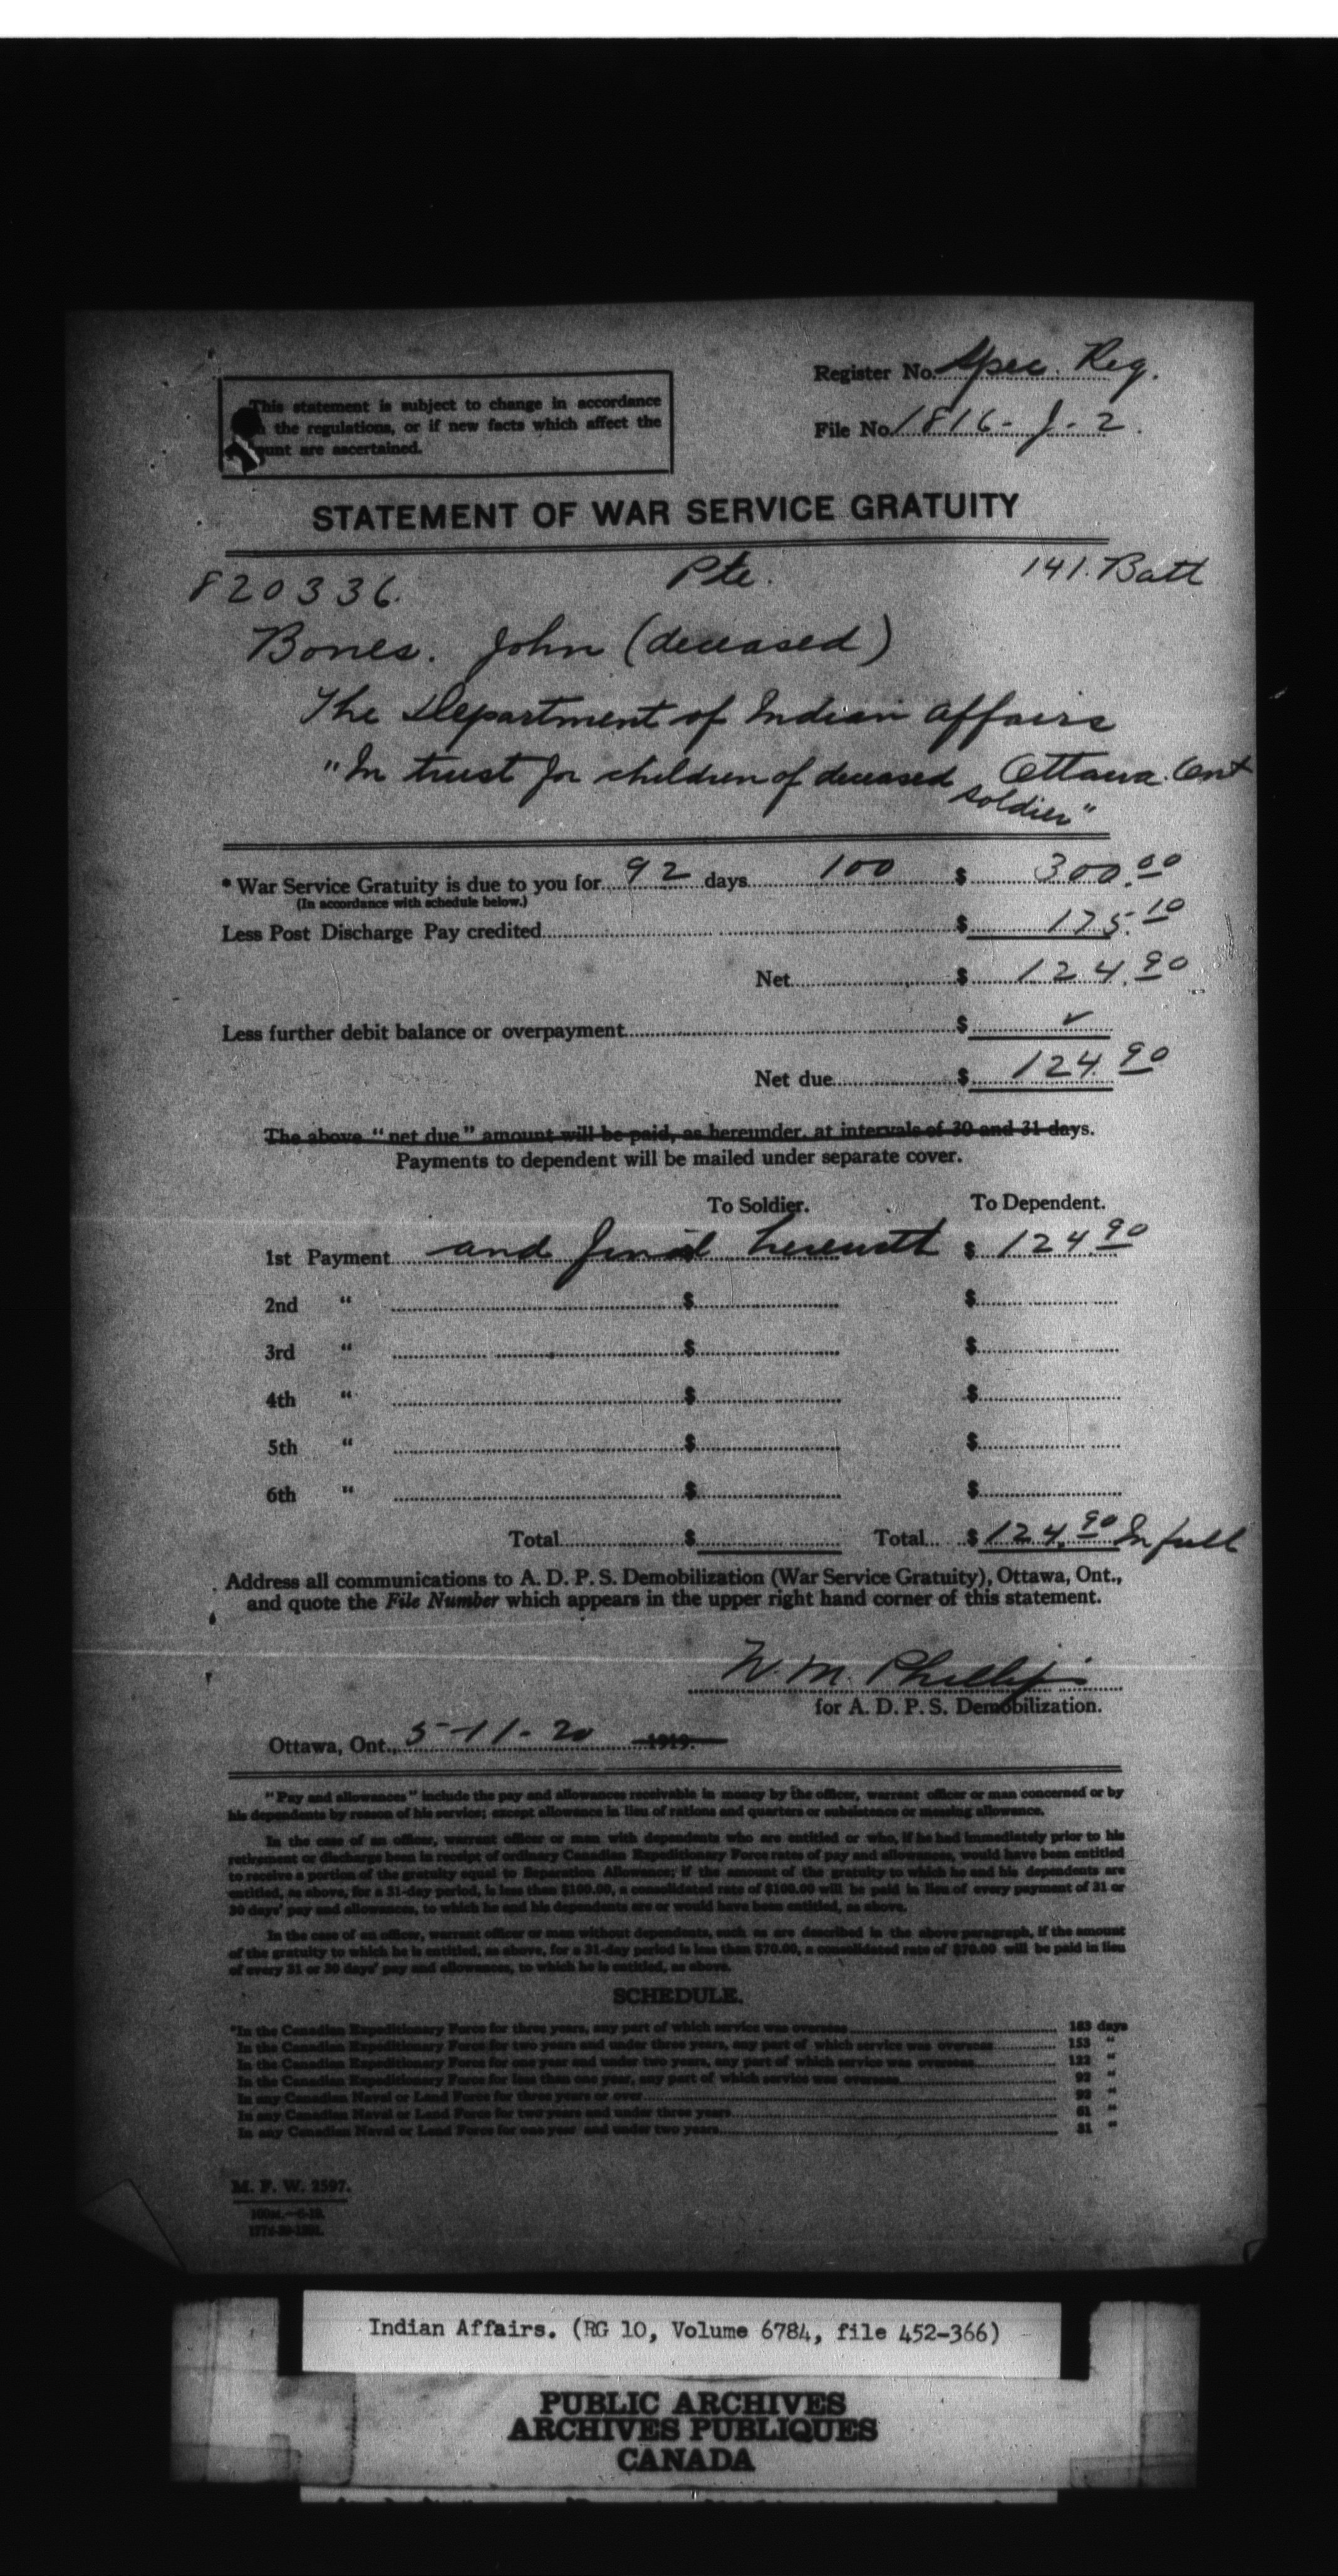 Register No. Spec. Reg.
File No. 1816-J-2.
This statement is subject to change in accordance
the regulations, or if new facts which affect the
unt are ascertained.
STATEMENT OF WAR SERVICE GRATUITY
820336. Pte. 141. Batt
Bones. John (deceased)
The Department of Indian Affairs
"In trust for children of deceased Ottawa. Ont
soldier"
* War Service Gratuity is due to you for 92 days 100 $ 300.00
(In accordance with schedule below.)
Less Post Discharge Pay credited $ 175.10
Net $ 124.90
Less further debit balance or overpayment $ ✓
Net due $ 124.90
The above "net due" amount will be paid, as hereunder, at intervals of 30 and 31 days.
Payments to dependent will be mailed under separate cover.
To Soldier. To Dependent.
1st Payment and final herewith $ 124.90
2nd " $ $
3rd " $ $
4th " $ $
5th " $ $
6th " $ $
Total $ Total $ 124.90 In full
Address all communications to A. D. P. S. Demobilization (War Service Gratuity), Ottawa, Ont.,
and quote the File Number which appears in the upper right hand corner of this statement.
W. M. Phillips
for A. D. P. S. Demobilization.
Ottawa, Ont., 5-11-20 1919.
"Pay and allowances" include the pay and allowances receivable in money by the officer, warrant officer or man concerned or by
his dependents by reason of his service; except allowance in lieu of rations and quarters or subsistence or messing allowance.
In the case of an officer, warrant officer or man with dependents who are entitled or who, if he had immediately prior to his
retirement or discharge been in receipt of ordinary Canadian Expeditionary Force rates of pay and allowances, would have been entitled
to receive a portion of the gratuity equal to Separation Allowance; if the amount of the gratuity to which he and his dependents are
entitled, as above, for a 31-day period, is less than $100.00, a consolidated rate of $100.00 will be paid in lieu of every payment of 31 or
30 days' pay and allowances, to which he and his dependents are or would have been entitled, as above.
In the case of an officer, warrant officer or man without dependents, such as are described in the above paragraph, if the amount
of the gratuity to which he is entitled, as above, for a 31-day period is less than $70.00, a consolidated rate of $70.00 will be paid in lieu
of every 31 or 30 days' pay and allowances, to which he is entitled, as above.
SCHEDULE.
*In the Canadian Expeditionary Force for three years, any part of which service was overseas 183 days
In the Canadian Expeditionary Force for two years and under three years, any part of which service was overseas 153 "
In the Canadian Expeditionary Force for one year and under two years, any part of which service was overseas 122 "
In the Canadian Expeditionary Force for less than one year, any part of which service was overseas 92 "
In any Canadian Naval or Land Force for three years or over 92 "
In any Canadian Naval or Land Force for two years and under three years 61 "
In any Canadian Naval or Land Force for one year and under two years 31 "
M. F. W. 2597.
Indian Affairs. (RG 10, Volume 6784, file 452-366)
PUBLIC ARCHIVES
ARCHIVES PUBLIQUES
CANADA